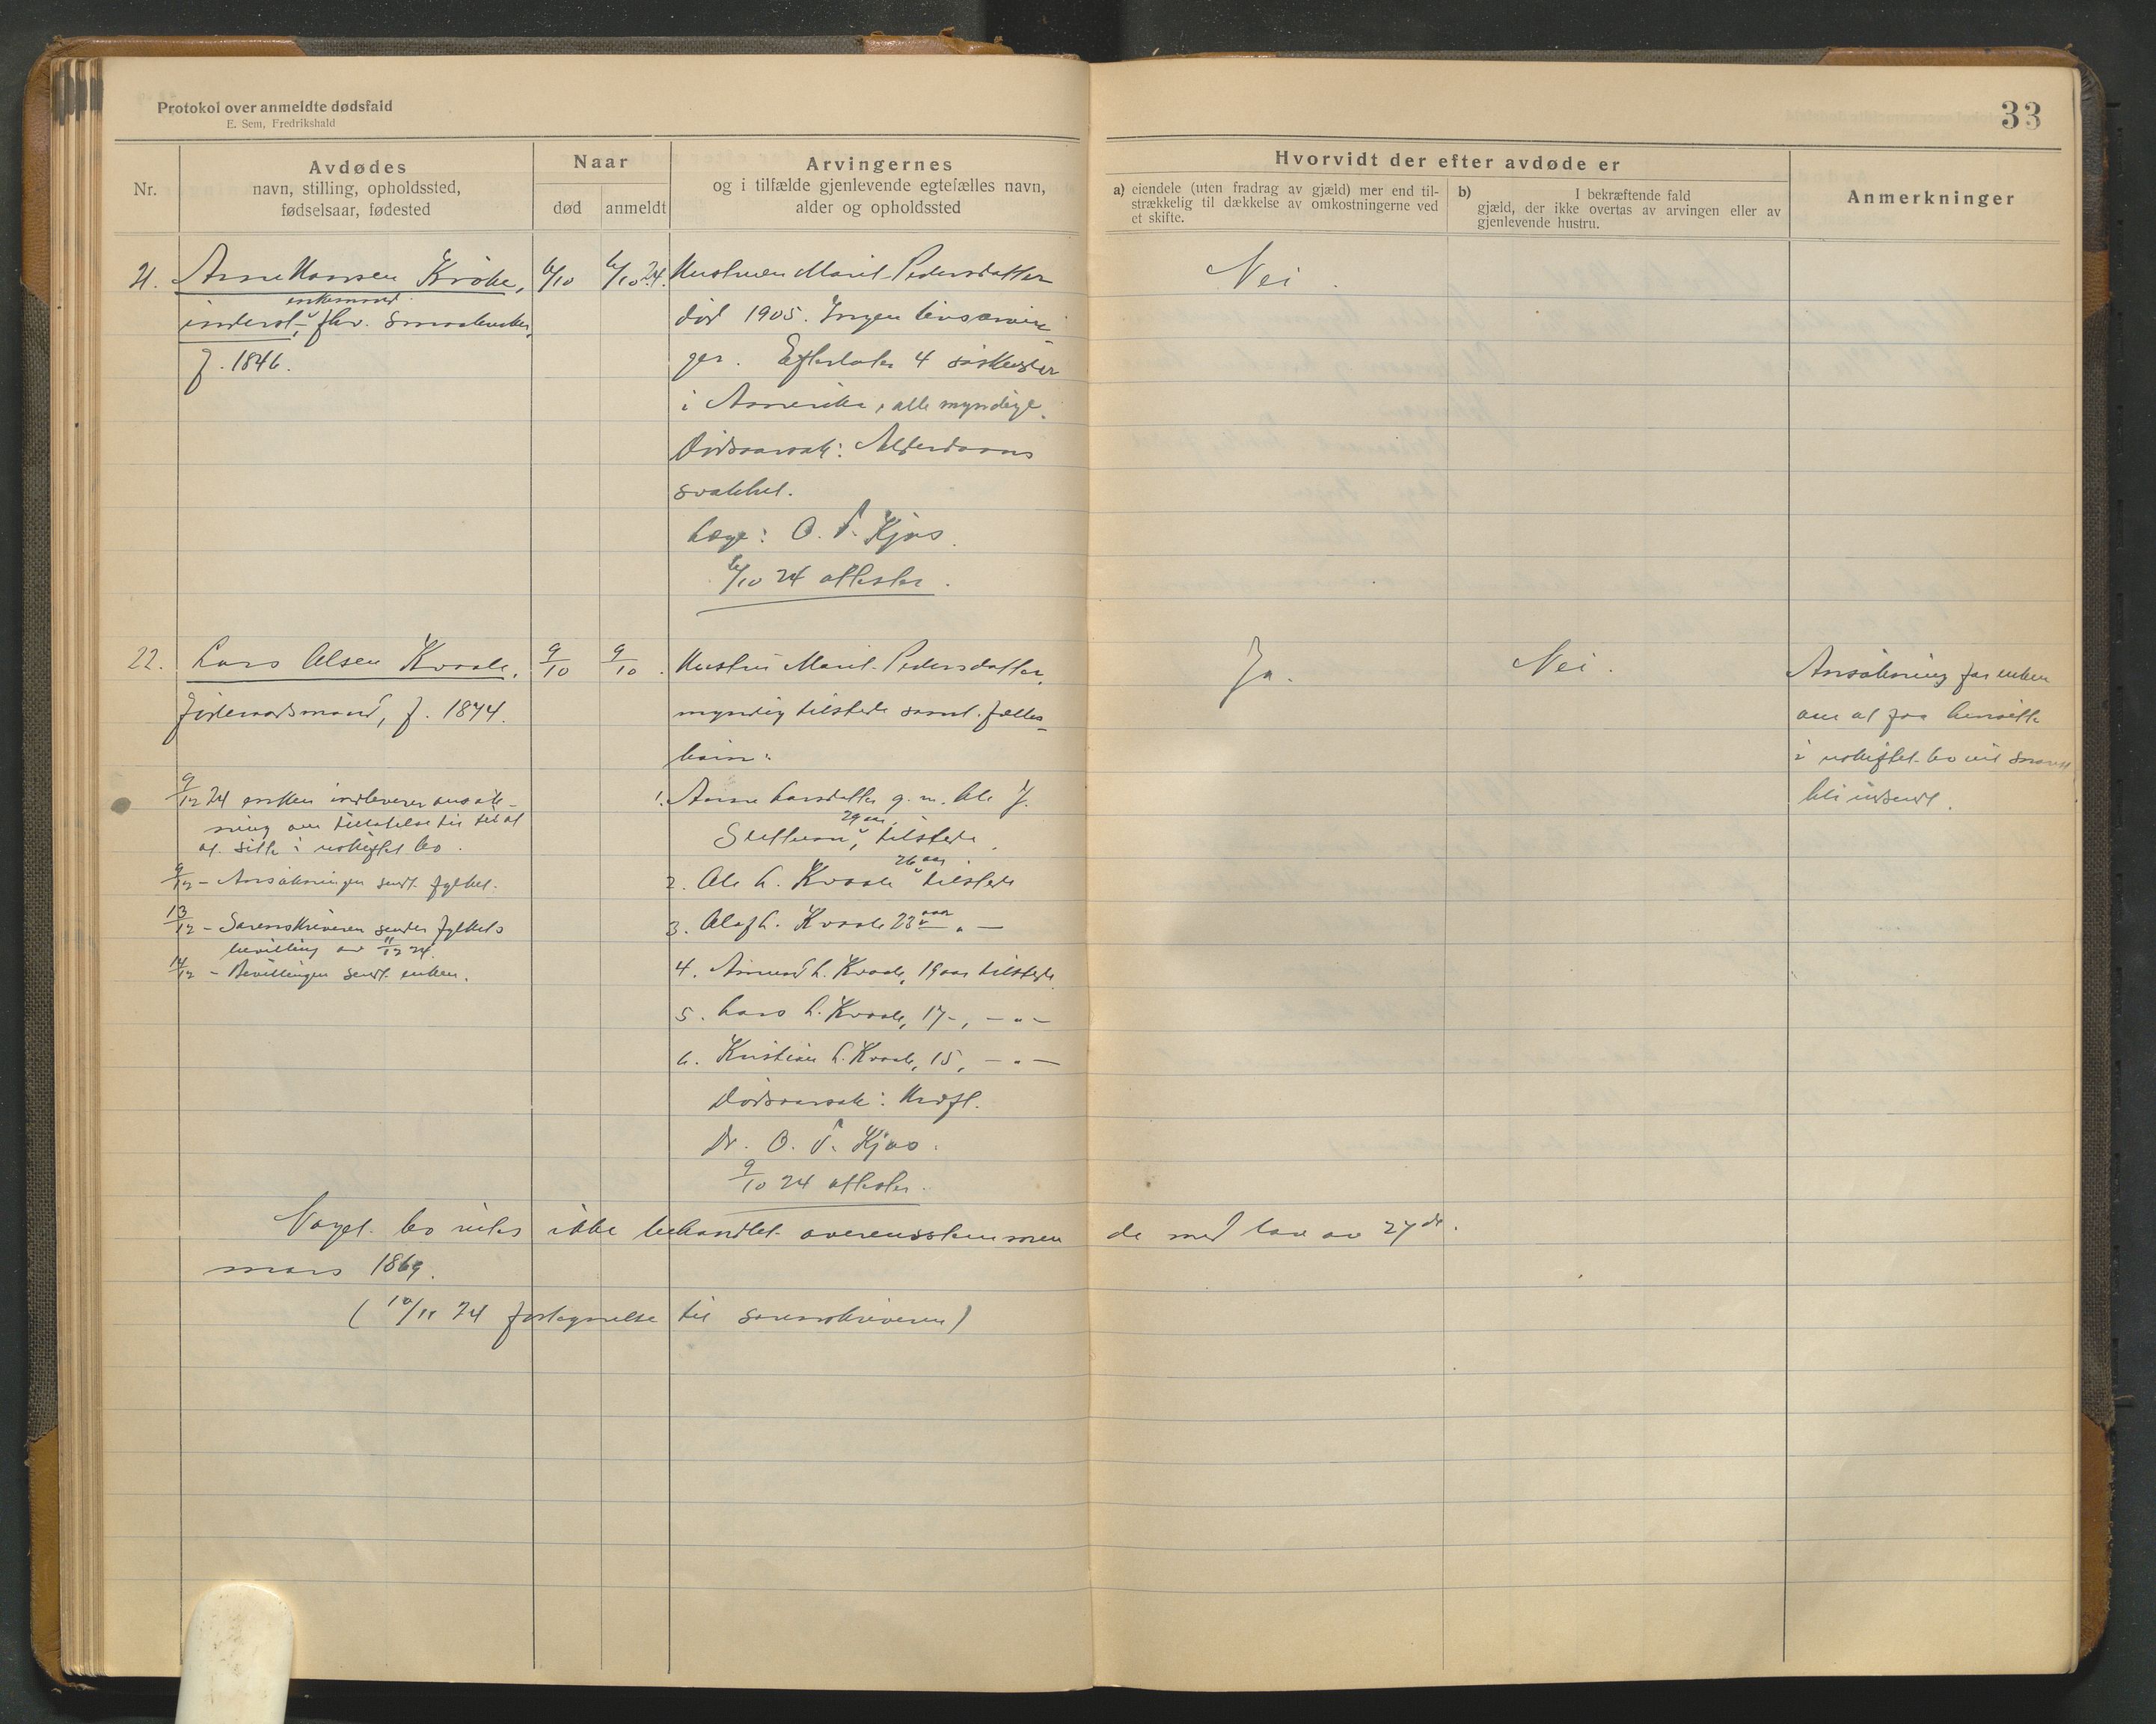 Protokol over anmeldte dødsfald
E. Sem, Fredrikshald
33
Nr.
Avdødes
navn, stilling, opholdssted,
fødselsaar, fødested
Naar
død
anmeldt
Arvingernes
og i tilfælde gjenlevende egtefælles navn,
alder og opholdssted
Hvorvidt der efter avdøde er
a) eiendele (uten fradrag av gjæld) mer end til-
strækkelig til dækkelse av omkostningerne ved
et skifte.
b) I bekræftende fald
gjæld, der ikke overtas av arvingen eller av
gjenlevende hustru.
Anmerkninger
21.
Arne Hansen Kroke,
enkemand
inderst, fhv.
f. 1846.
6/10
6/10 24.
Hustruen Marit Pedersdatter
død 1905. Ingen livsarvin-
ger. Efterlater 4 søskender
i Amerika, alle myndige.
Dødsaarsak: Alderdoms
svakhet.
Læge: O. T. Kjos.
6/10 24 attester.
Nei.
22.
Lars Olsen Kvaale,
jordbr
f. 1874.
9/10
9/10.
Hustru Marit Pedersdatter,
myndig tilstede samt fælles-
barn:
1. Anne Larsdatter g. m. Ole J.
29 aar
tilstede.
2. Ole L. Kvaale 26 aar tilstede
3. Olaf L. Kvaale 23 aar - " -
4. Amund L. Kvaale, 19 aar tilstede
5. Lars L. Kvaale, 17 -, - " -
6. Kristian L. Kvaale, 15, - " -
Dødsaarsak:
Dr. O. T. Kjos.
9/10 24 attester.
Ja.
Nei.
Ansøkning fra enken
om at faa hensitte
i uskiftet bo vil snarest
bli indsendt.
9/12 24 enken indleverer ansøk-
ning om tillatelse til til at
at sitte i uskiftet bo.
9/12 - Ansøkningen sendt fylket.
13/12 - Sorenskriveren sender fylkets
bevilling av 11/12 24.
14/12 - Bevillingen sendt enken.
Noget bo vites ikke behandlet overensstemmen de med lov av 27de.
mars 1869.
(10/11 24 fortegnelse til sorenskriveren)